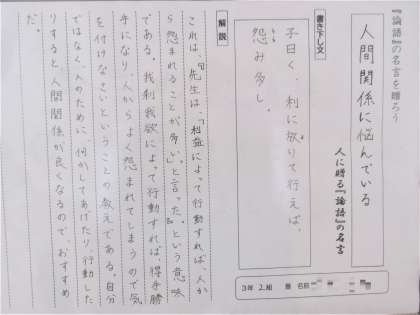 『論語』の名言を贈ろう
人間関係に悩んでいる
人に贈る『論語』の名言
3年 2組 番 名前
書き下し文
子曰く、利に放りて行えば、
怨み多し。
解説
これは、『先生は、「利益によって行動すれば、人か
ら怨まれることが多い」と言った。』という意味
である。我利我欲によって行動すれば、得手勝
手になり、人からよく怨まれてしまうので気
を付けなさいということの教えである。自分
ではなく、人のために何かしてあげたり、行動した
りすると人間関係が良くなるので、おすすめ
だ。